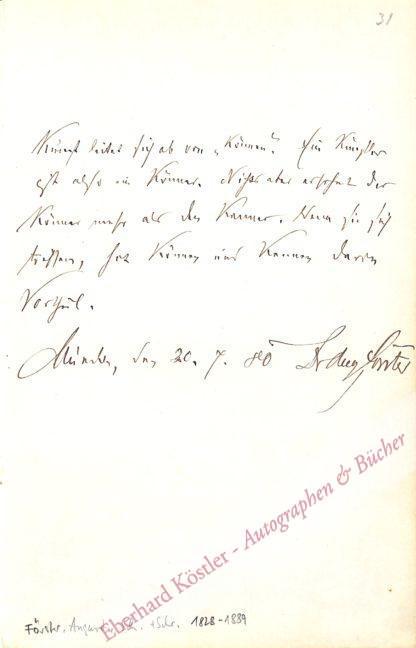 31
Kunst leitet sich ab von „Können“. Ein Künstler
ist also ein Könner. Nichts aber der
Könner mehr als den Kenner. Wenn sie sich
treffen, hat Können und Kennen davon
Vortheil.
München, den 20. 7. 80 Dr Aug Förster
Eberhard Köstler - Autographen & Bücher
Förster, August, 1828-1889